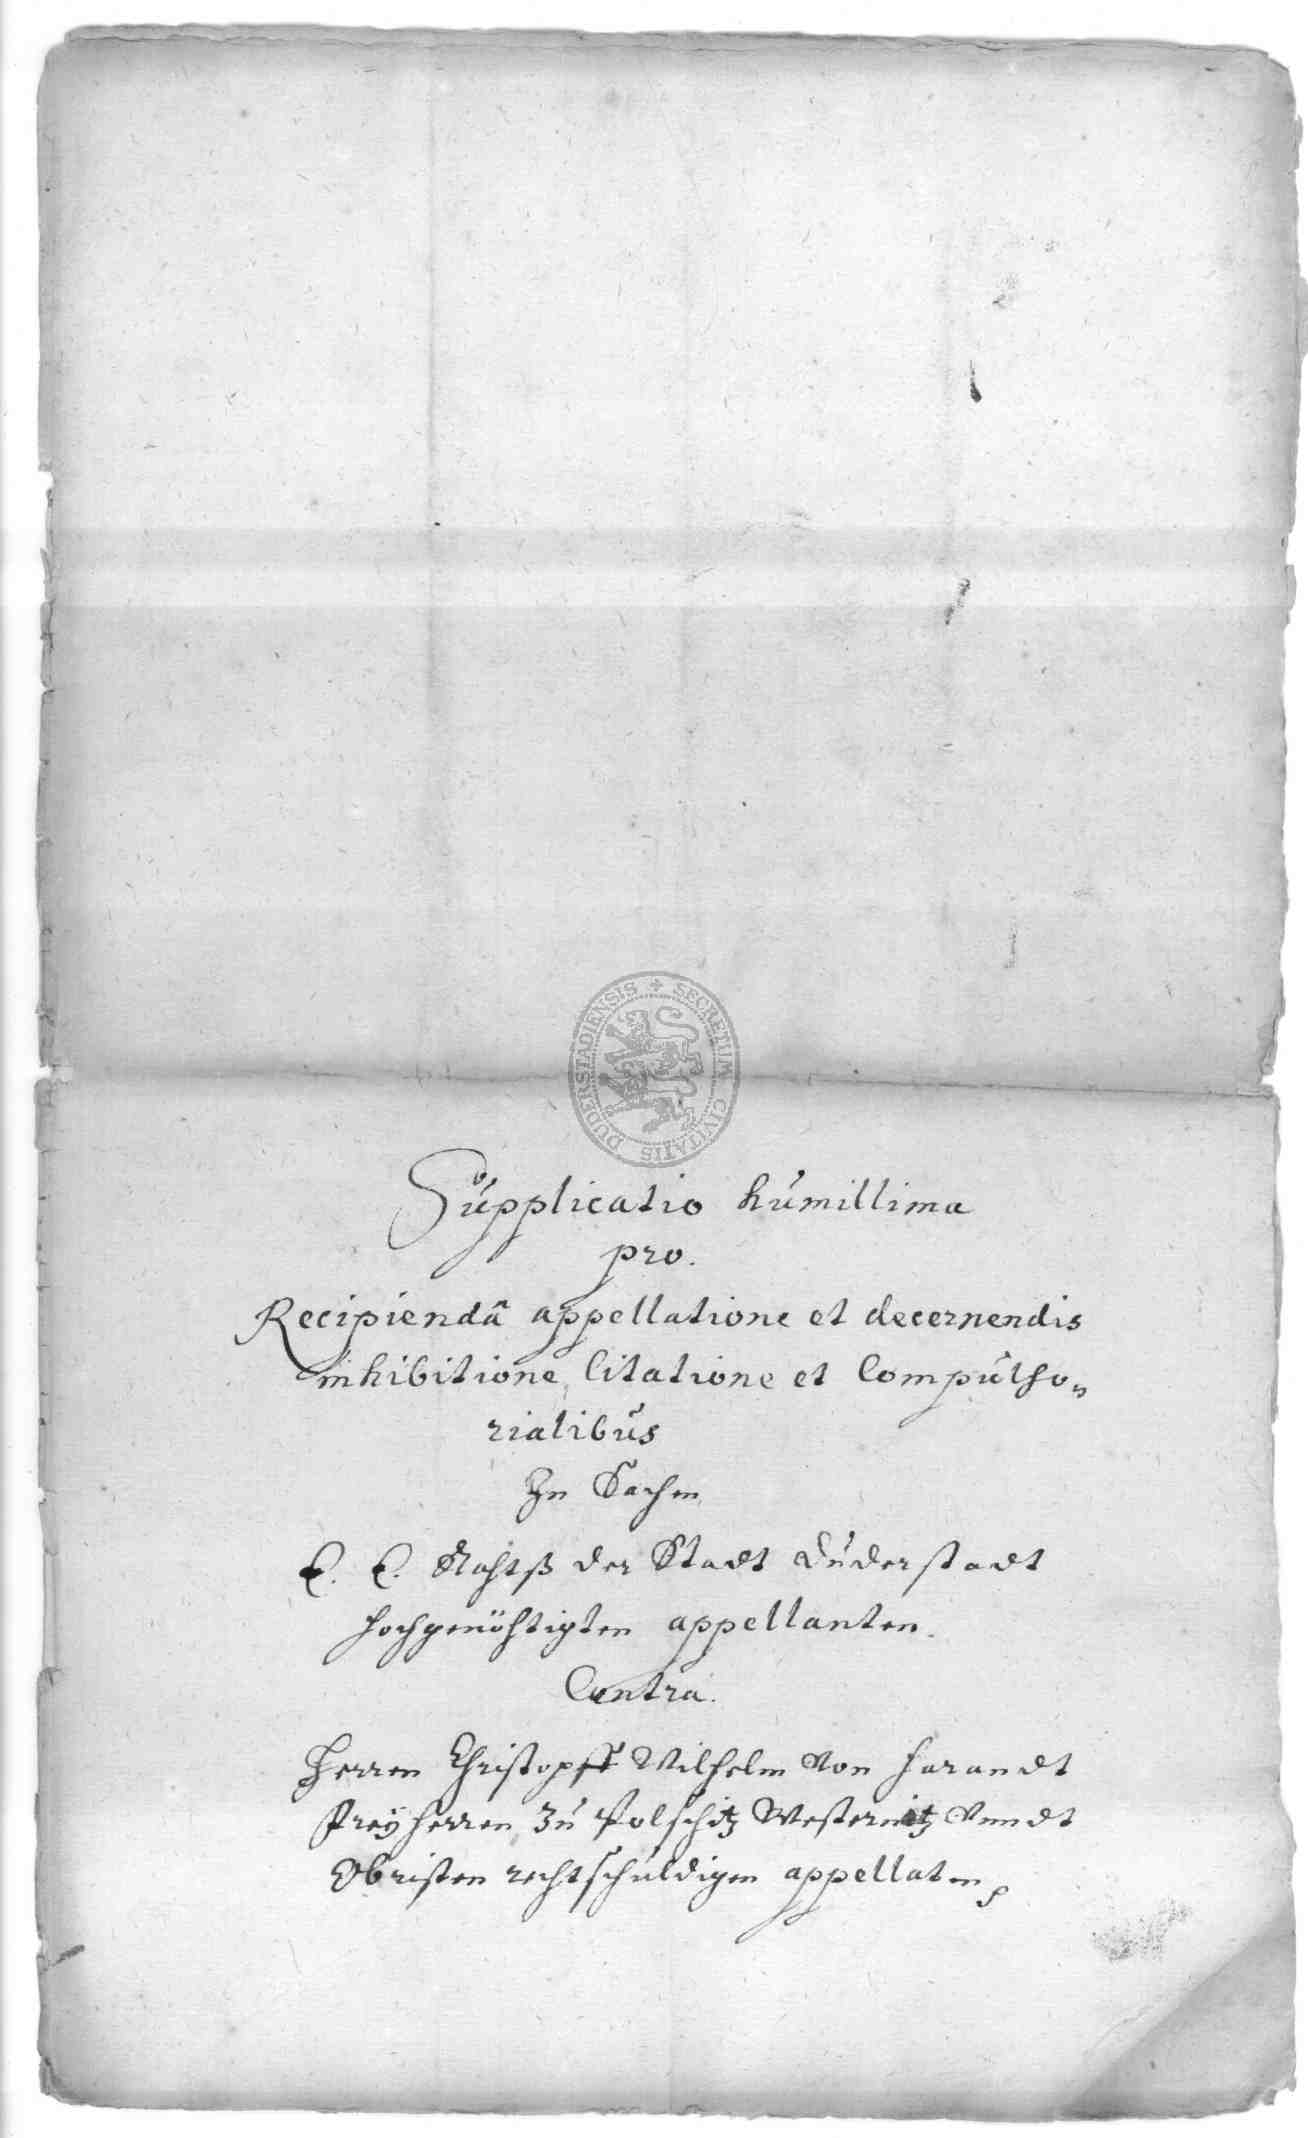 SECRETUM CIVITATIS DUDERSTADIENSIS
Supplicatio humillima
pro.
Recipiendâ appellatione et decernendis
inhibitione, Citatione et Compulso=
rialibus
In Sachen
E. E. Rahtß der Stadt Duderstadt
hochgenöhtigten appellanten.
Contra.
Herren Christopff Wilhelm Von Harandt
Freÿherren zu Polschitz Westernitz Vnndt
Obristen rechtschuldigen appellaten